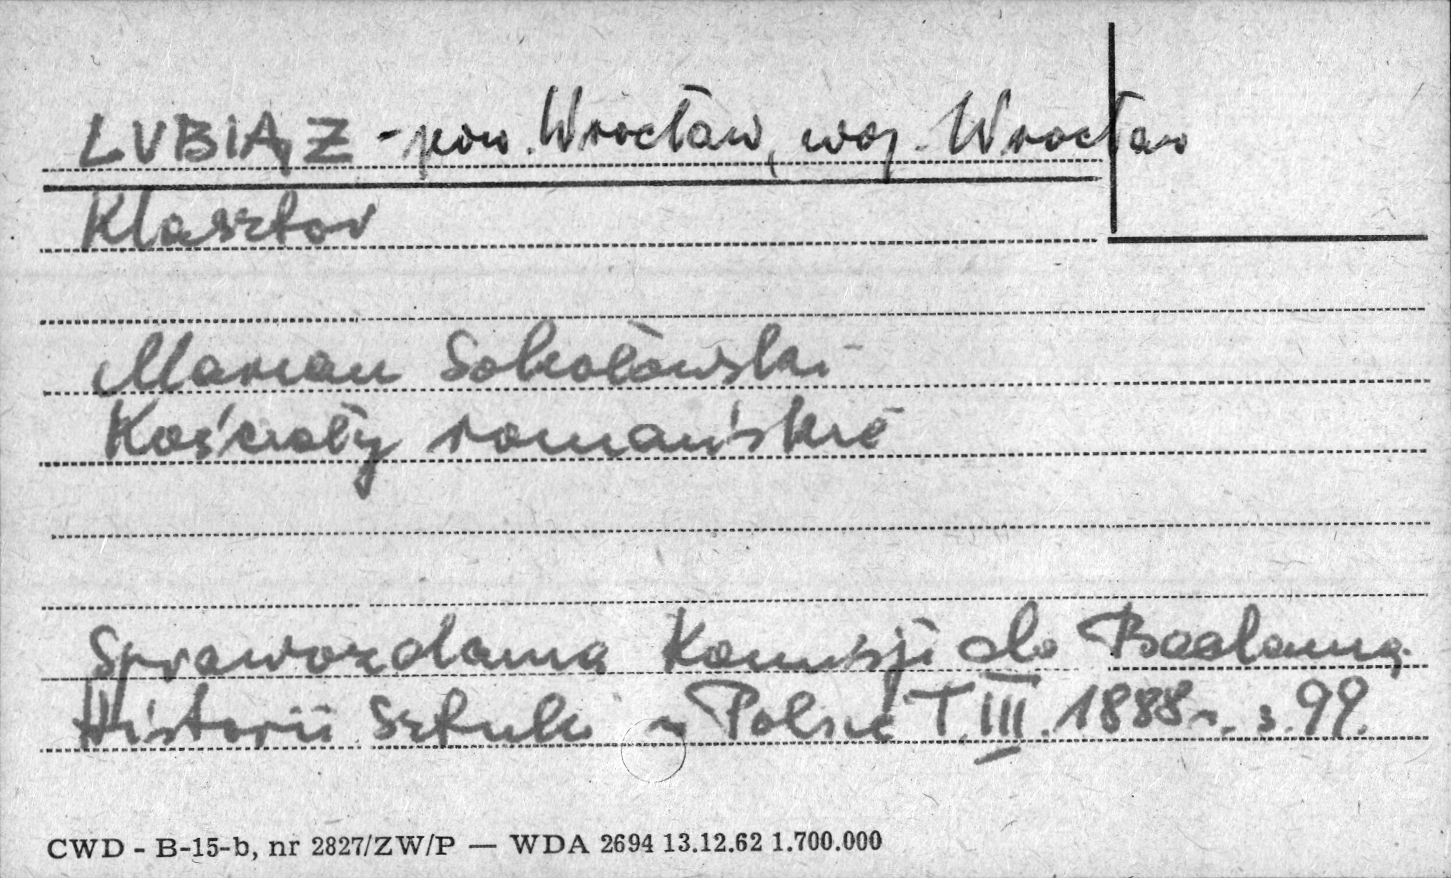 LUBIĄZ - pow. Wrocław, woj. Wrocław
Klasztor
Marian Sokołowski
Kościoły romańskie
Sprawozdania Komisji do Badania
Historii Sztuki w Polsce T. III. 1888 r. s. 99.
CWD - B-15-b, nr 2827/ZW/P — WDA 2694 13.12.62 1.700.000